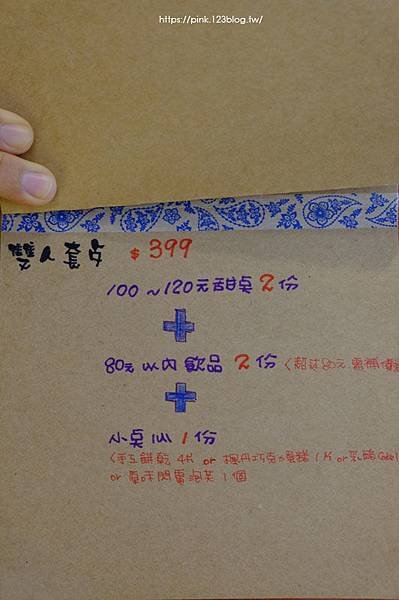 https://pink.123blog.tw/
雙人套点 $399
100~120元甜桌2份
+
80元以內 飲品 2份 (超过80元.需補價
+
小桌心 1份
(手工餅乾 4片 or 提丹巧克力蛋糕 1片 or 乳酪
or 原味閃電泡芙 1個